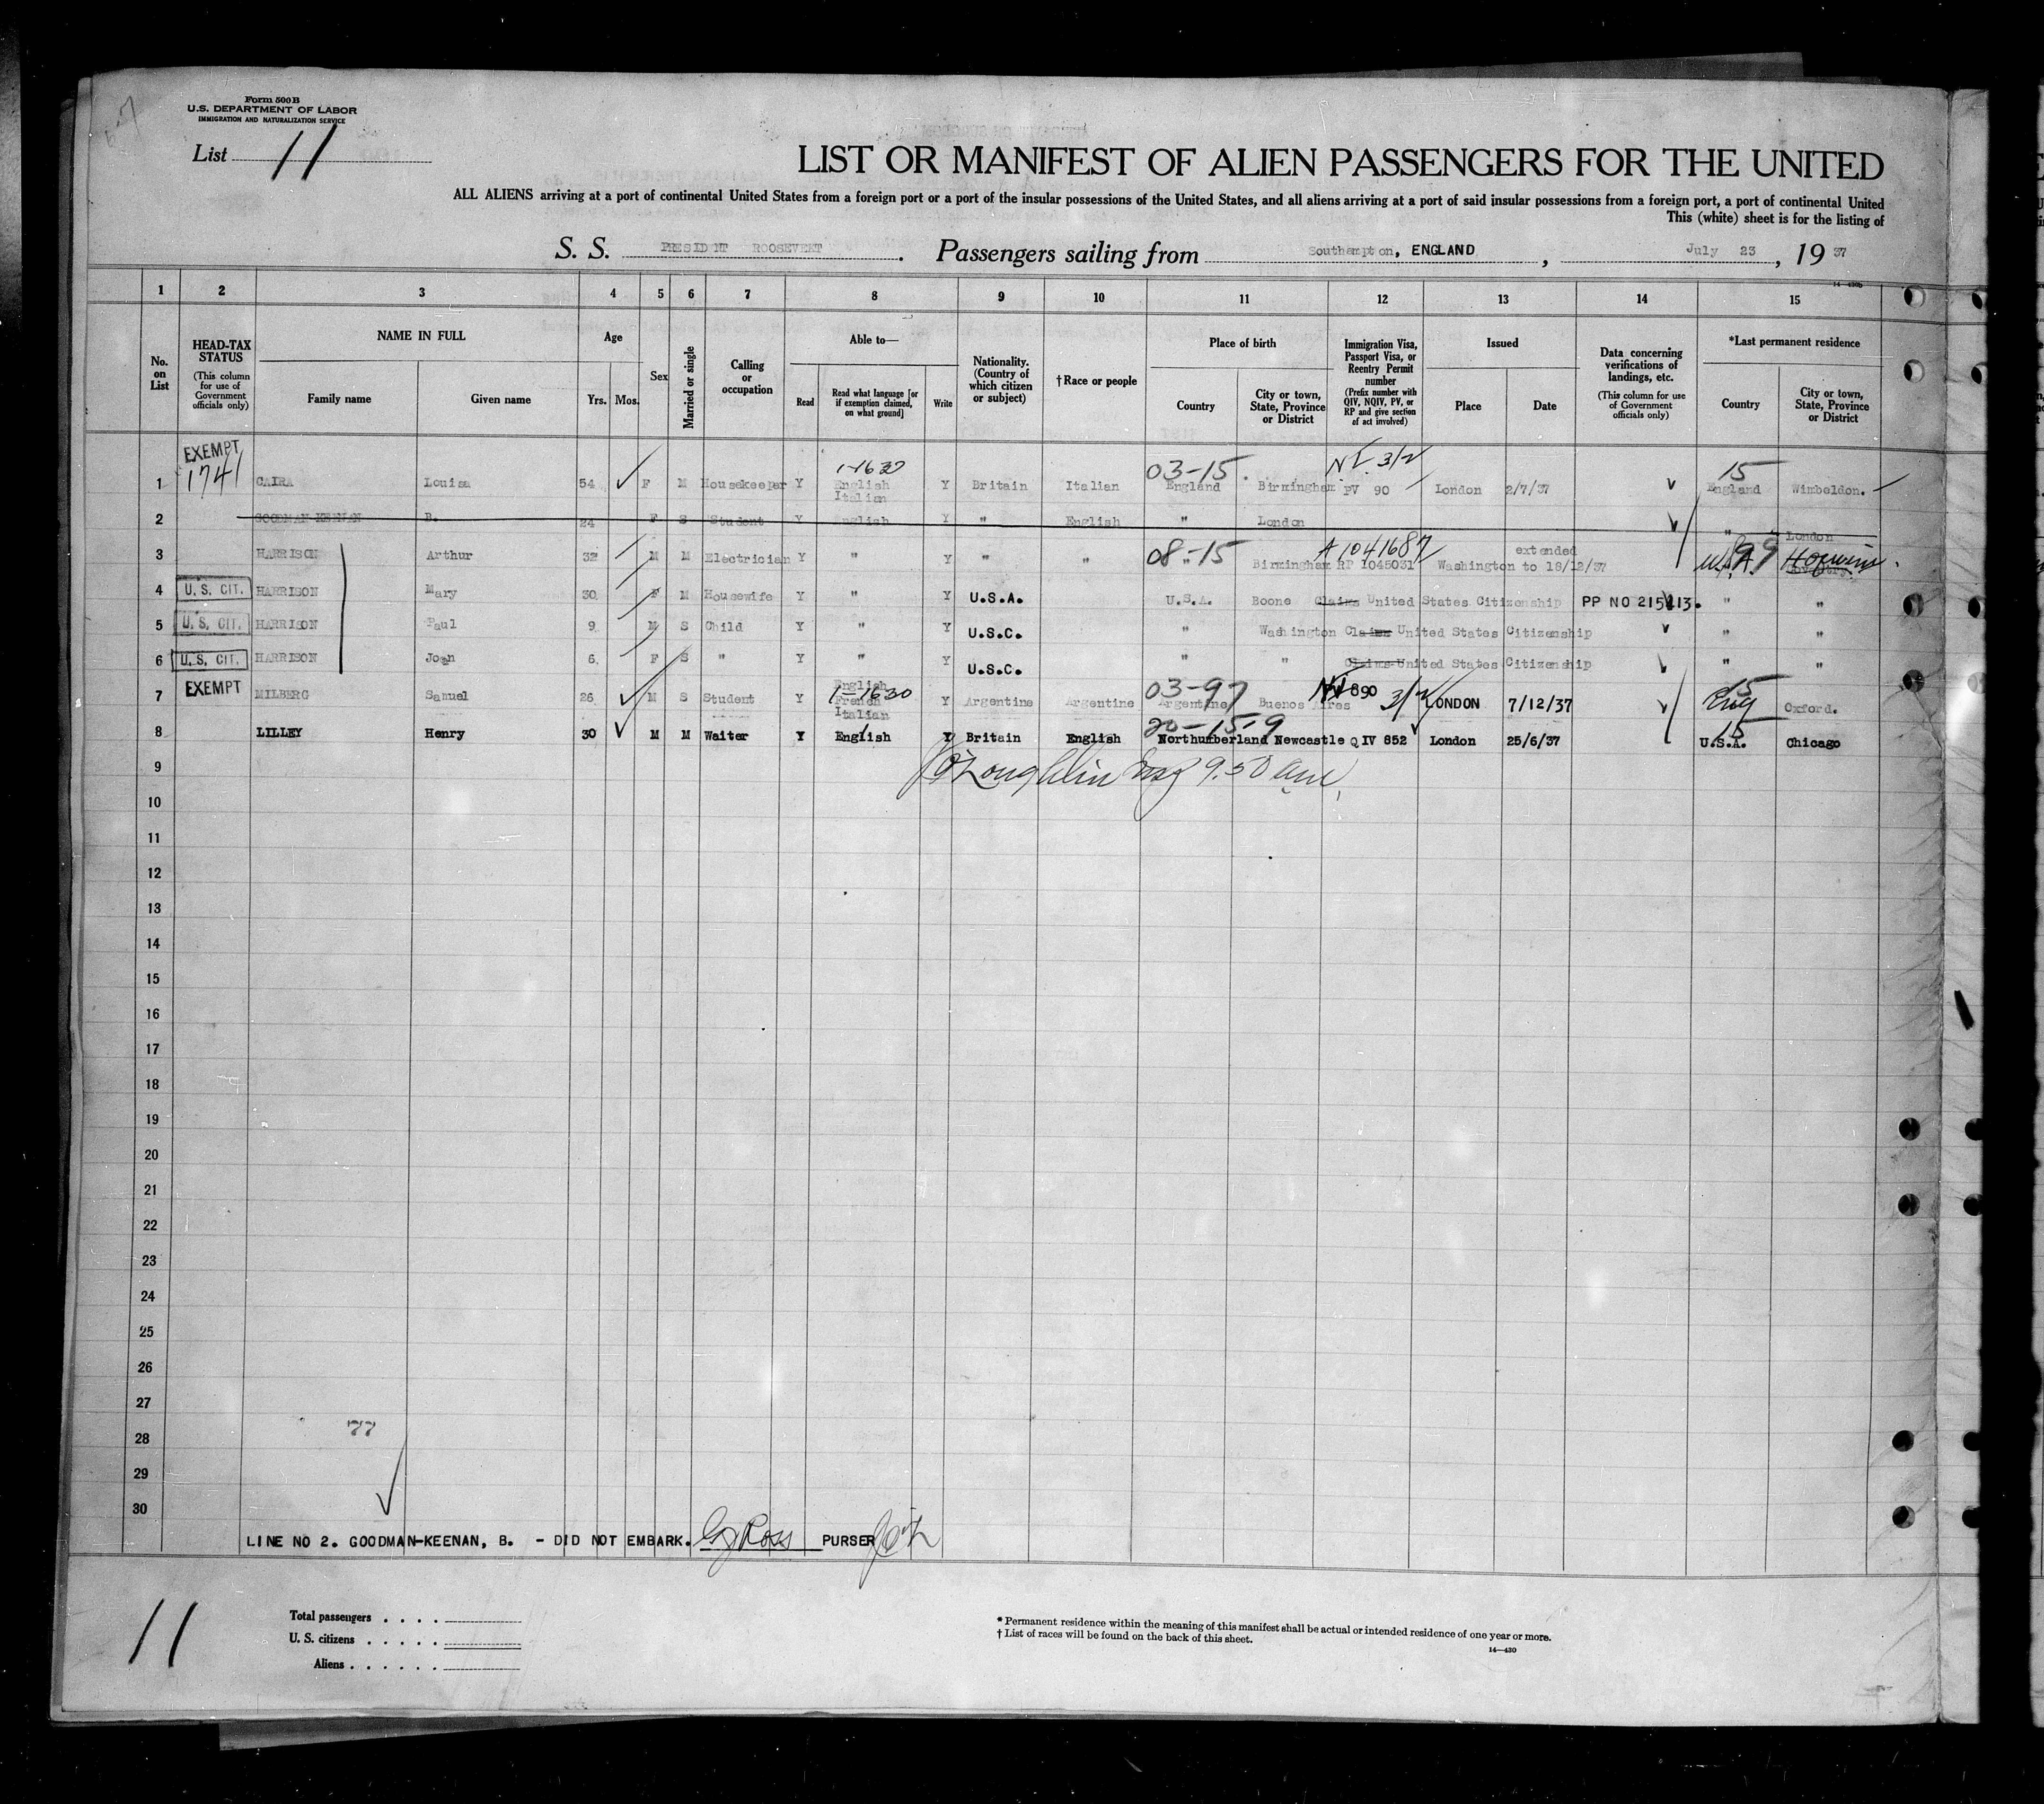 Form 500 B
U.S. DEPARTMENT OF LABOR
IMMIGRATION AND NATURALIZATION SERVICE
List 11
LIST OR MANIFEST OF ALIEN PASSENGERS FOR THE UNITED
ALL ALIENS arriving at a port of continental United States from a foreign port or a port of the insular possessions of the United States, and all aliens arriving at a port of said insular possessions from a foreign port, a port of continental United
This (white) sheet is for the listing of
S. S. PRESIDENT ROOSEVELT. Passengers sailing from Southampton, ENGLAND, July 23, 19 37
14-430b
1 2 3 4 5 6 7 8 9 10 11 12 13 14 15
No. on List
HEAD-TAX STATUS (This column for use of Government officials only)
NAME IN FULL
Family name Given name
Age
Yrs. Mos.
Sex
Married or single
Calling or occupation
Able to—
Read
Read what language [or if exemption claimed, on what ground]
Write
Nationality. (Country of which citizen or subject)
†Race or people
Place of birth
Country
City or town, State, Province or District
Immigration Visa, Passport Visa, or Reentry Permit number (Prefix number with QIV, NQIV, PV, or RP and give section of act involved)
Issued
Place Date
Data concerning verifications of landings, etc. (This column for use of Government officials only)
*Last permanent residence
Country
City or town, State, Province or District
EXEMPT 1-1630 03-15 3/2 15
1 1741 CAIRA Louisa 54 F M Housekeeper Y English Italian Y Britain Italian England Birmingham PV 90 London 2/7/37 England Wimbeldon.
2 GOODMAN KEENAN B. 24 F S Student Y English Y " English " London " London
3 HARRISON Arthur 32 M M Electrician Y " Y " " 08-15 " Birmingham A1041687 RP 1045031 Washington extended to 18/12/37 U.S.A. 99
4 U. S. CIT. HARRISON Mary 30 F M Housewife Y " Y U.S.A. U.S.A. Boone Claims United States Citizenship PP NO 215413. " "
5 U. S. CIT. HARRISON Paul 9 M S Child Y " Y U.S.C. " Washington Claims United States Citizenship " "
6 U. S. CIT. HARRISON Joan 6 F S " Y " Y U.S.C. " " Claims United States Citizenship " "
7 EXEMPT MILBERG Samuel 26 M S Student Y English French Italian 1-1630 Y Argentine Argentine 03-97 Argentine Buenos Aires 890 3/2 LONDON 7/12/37 15 Eng Oxford.
8 LILLEY Henry 30 M M Waiter Y English Y Britain English 20-15-9 Northumberland Newcastle QIV 852 London 25/6/37 15 U.S.A. Chicago
9 O'Loughlin Insp 9.50 am
10
11
12
13
14
15
16
17
18
19
20
21
22
23
24
25
26
27
28 77
29
30
LINE NO 2. GOODMAN-KEENAN, B. - DID NOT EMBARK. Ross PURSER
11
Total passengers . . . .
U. S. citizens . . . . .
Aliens . . . . . .
* Permanent residence within the meaning of this manifest shall be actual or intended residence of one year or more.
† List of races will be found on the back of this sheet.
14—430